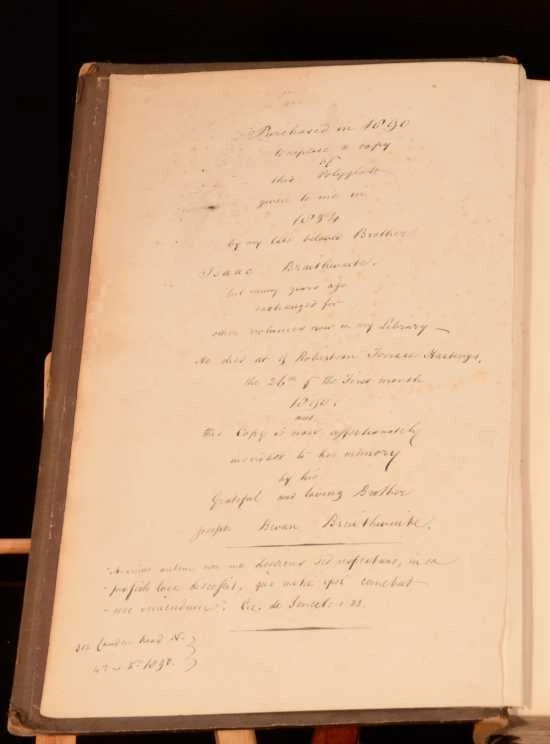 Purchased in 1890
to replace a copy
of
this Polyglott
given to me in
1834
by my late beloved Brother
Isaac Braithwaite.
but many years ago
exchanged for
other volumes now in my Library —
He died at 4 Robertson Terrace Hastings,
the 26th of the First month
1890.
and
this Copy is now affectionately
inscribed to his memory
by his
Grateful and loving Brother
Joseph Bevan Braithwaite.
"Animus autem non me deserens sed respectans, in ea
profecto loca discessit, quo mihi ipsi cernebat
esse veniendum". Cic. de Senect. 23.
312 Camden Road N.
1890.